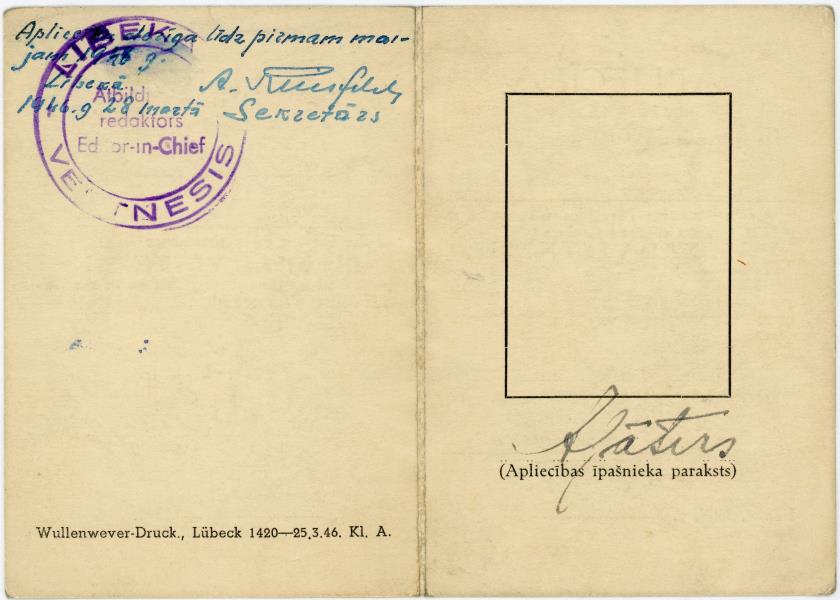 Apliecība derīga līdz pirmam mai-
jam 1946 g.
Lībekā
1946.g 28 martā
A.
Sekretārs
LIBEK
Atbildī
redaktors
Editor-in-Chief
VESTNESIS
Wullenwever-Druck., Lübeck 1420—25.3.46. Kl. A.
(Apliecības īpašnieka paraksts)